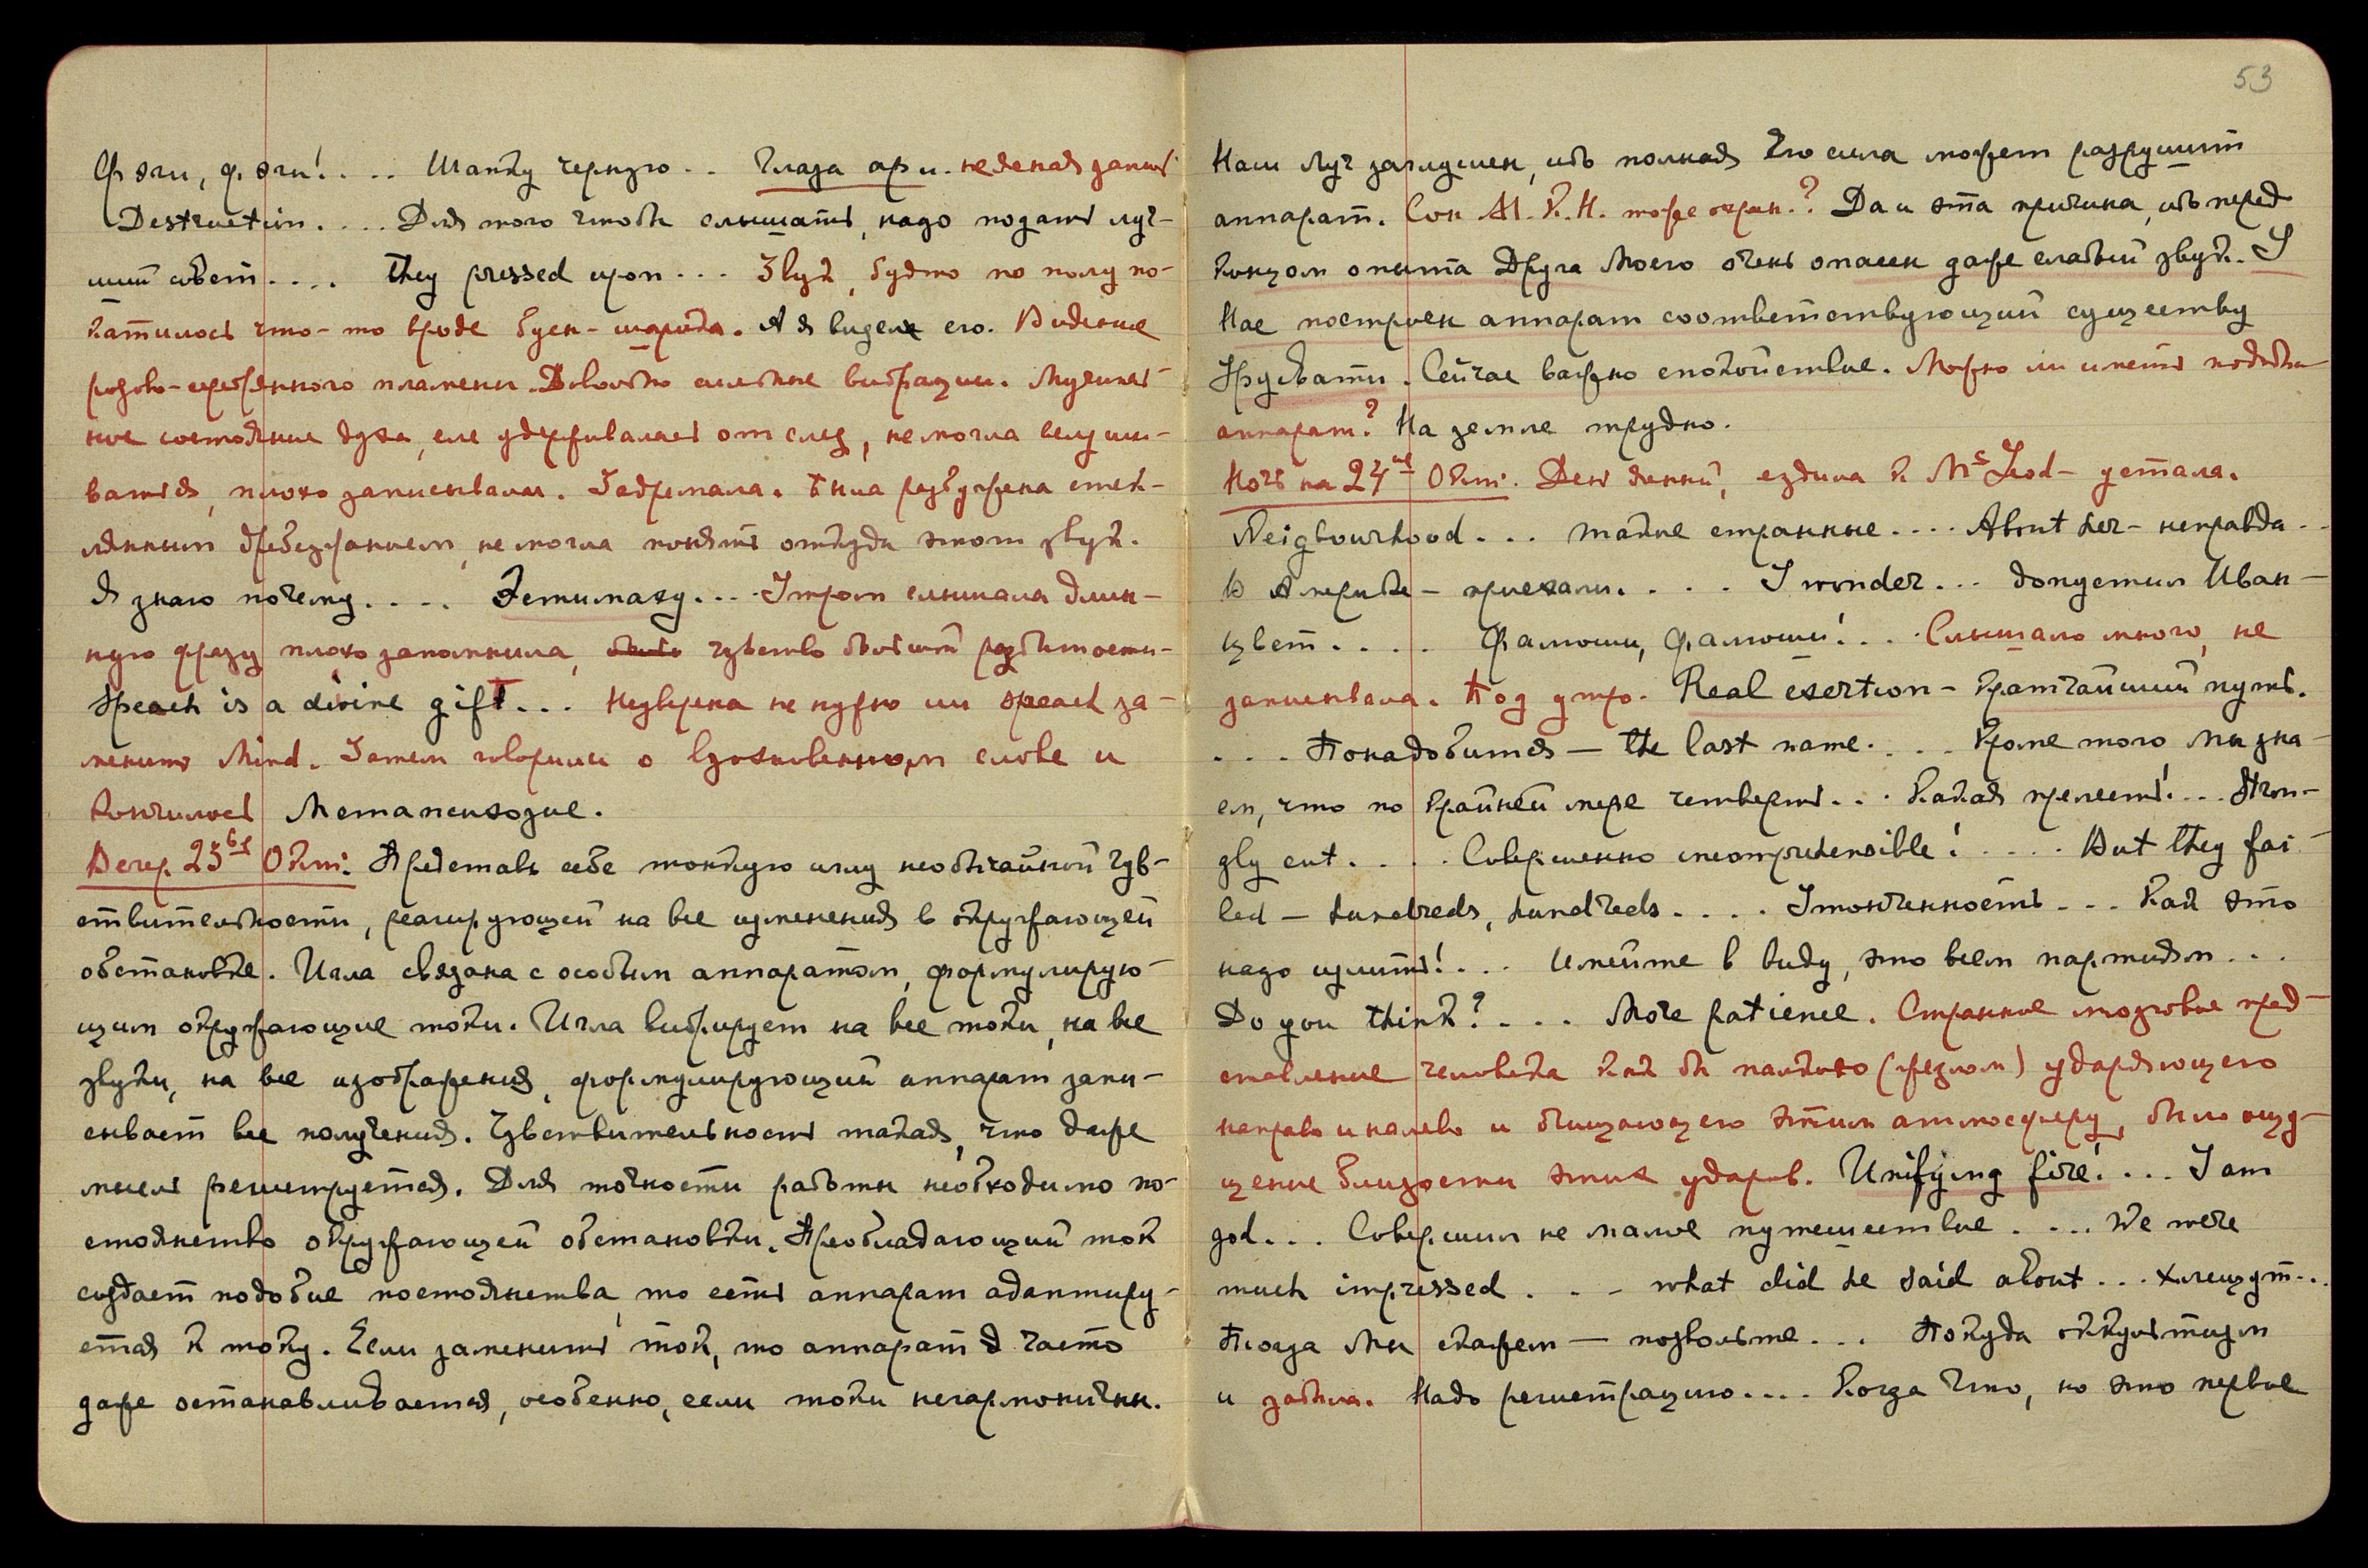 Фяги, фяги!.... Шапку черную.. Глаза
Destruction.... Для того чтобы слышать, надо подать луч-
ший совет.... they pressed upon... Звук, будто по полу по-
катилось что-то вроде бусы-шарика. А я видел его. Видение
розово-серебряного пламени. Довольно сильные вибрации. Мучитель-
ное состояние духа, еле удерживалась от слез, не могла вслуши-
ваться, плохо записывала. Задремала. Была разбужена стек-
лянным дребезжанием, не могла понять откуда этот звук.
Я знаю почему.... Утром слышала длин-
ную фразу плохо запомнила, чувство бывшей разбитости-
Speach is a divine gift... Неуверена не нужно ли speach за-
менить Mind. Затем говорили о вдохновенном слове и
кончилось Метапсихозие.
Вечер. 23го Окт: Представь себе тонкую иглу необычайной чув-
ствительности, реагирующей на все изменения в окружающей
обстановке. Игла связана с особым аппаратом, формулирую-
щим окружающие токи. Игла вибрирует на все токи, на все
звуки, на все изображения, формулирующий аппарат запи-
сывает все получения. Чувствительность такая, что даже
мысль регистрируется. Для точности работы необходимо по-
стоянство окружающей обстановки. Преобладающий ток
создает подобие постоянства, то есть аппарат адаптиру-
ется к току. Если заменить ток, то аппарат часто
даже останавливается, особенно, если токи негармоничны.
53
Наш Луч заглушен, ибо полная Его сила может разрушит
аппарат. Сон М.К.Н. тоже Да и эта причина, ибо перед
концом опыта Друга Моего очень опасен даже слабый звук. У
Нас построен аппарат соответствующий существу
Урусвати. Сейчас важно спокойствие. Можно ли иметь подобный
аппарат? На земле трудно.
Ночь на 24ое Окт: День ездила к Mc Leod- устала.
Neigbourhood... такие странные.... About her- неправда..
в Америке- приехали..... I wonder... допустим Иван-
цвет.... Фамоши, фамоши!... Слышала много, не
записывала. Под утро. Real exertion- кратчайший путь.
... Понадобится- the last name.... Кроме того, мы зна-
ем, что по крайней мере четверть... Какая прелесть!... Stron-
gly cut..... Совершенно incomprehensible!..... But they fai-
led - hundreds, hundreds.... Утонченность... Как это
надо ценить!... Имейте в виду, это всем партиям...
Do you think?.... More patience. Странное мозговое пред-
ставление человека как бы палкою (жезлом) ударяющего
направо и налево и очищающего этим атмосферу, было ощу-
щение близости этих ударов. Unifying fire!... I am
god... Совершил не малое путешествие.... We were
much impressed... what did he said about... хлещут...
Тогда мы скажем - позвольте... Покуда оккультизм
и забыла. Надо регистрацию.... Когда что, но это первое